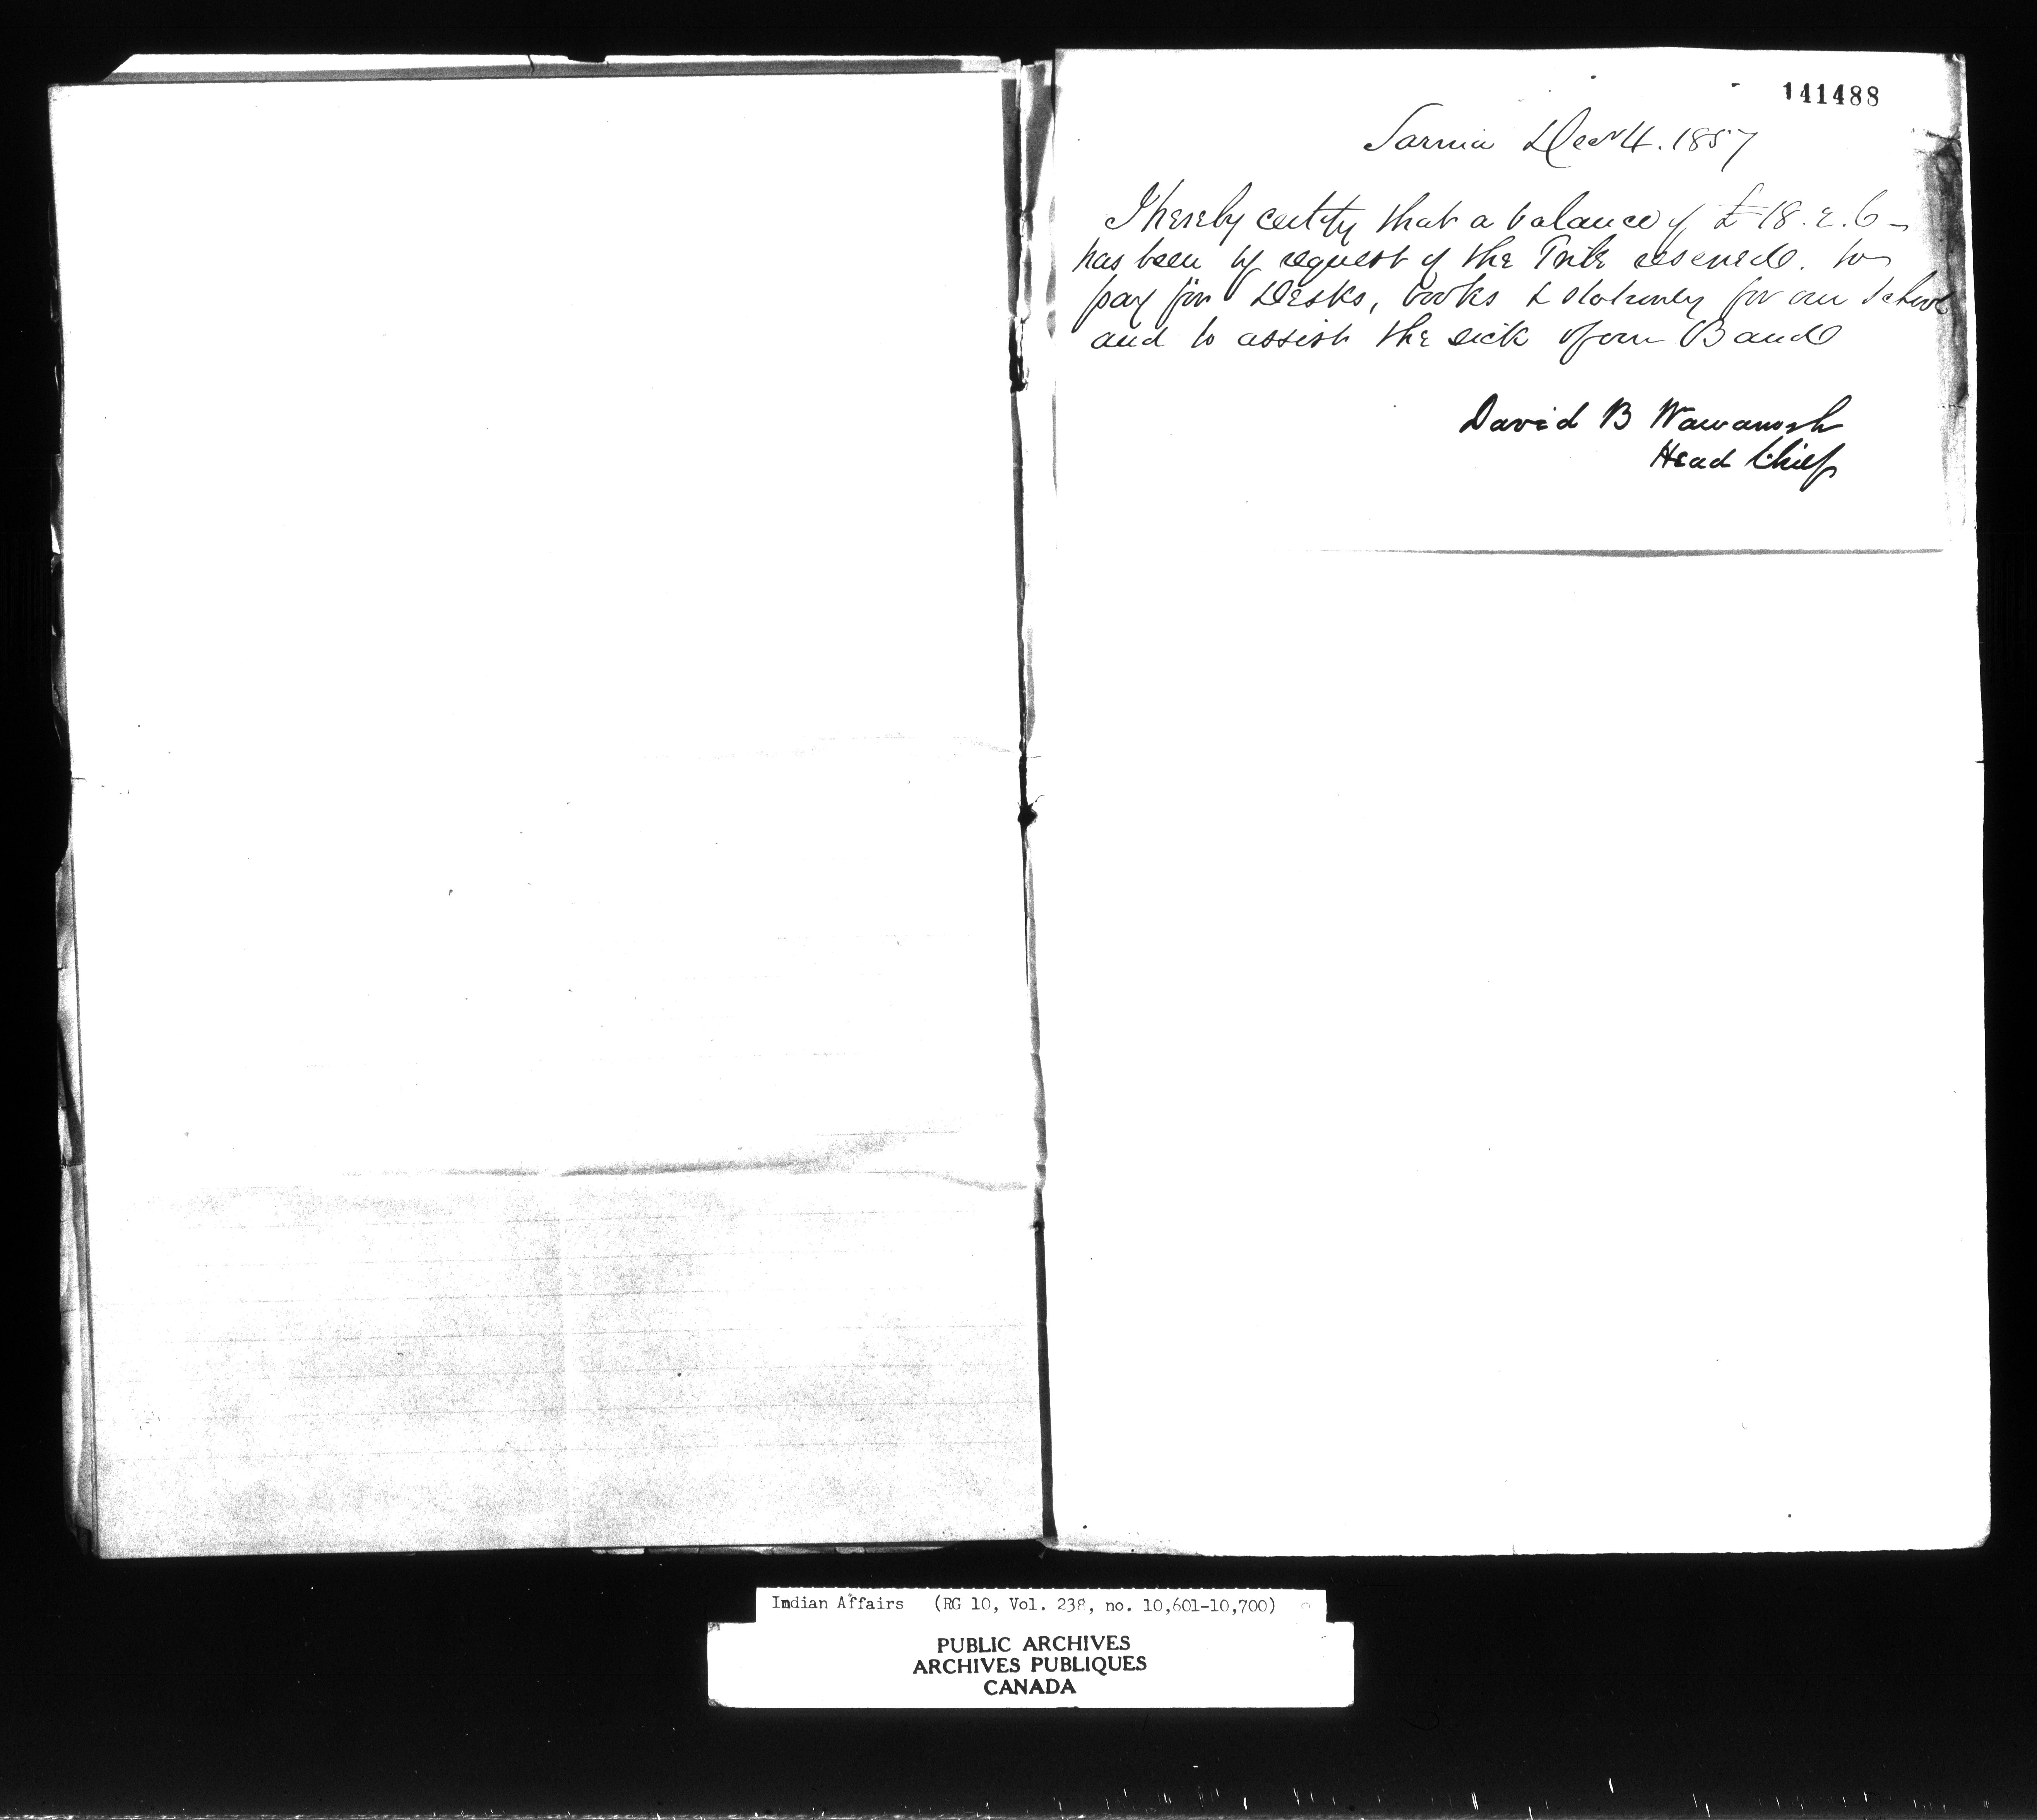 141488
Sarnia Decr 4. 1857
I hereby certify that a balance of £18.2.6-
has been by request of the Tribe reserved. to
pay for Desks, books & stationery for our School
and to assist the sick of our Band
David B Wawanosh
Head Chief
Indian Affairs (RG 10, Vol. 238, no. 10,601-10,700)
PUBLIC ARCHIVES
ARCHIVES PUBLIQUES
CANADA